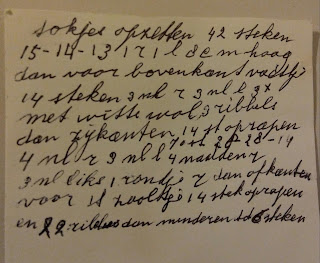 sokjes opzetten 42 steken
15-14-13 1 r 1 l 8 c m hoog
dan voor bovenkant voetje
14 steken 3 nl r 3 nl l 3x
met witte wol 3 ribbels
dan zijkanten 14 st oprapen
4 nl r 3 nl l 4 naalden r
3 nl 1 rondje r dan afkanten
voor st zooltje 14 stek oprapen
en 22 ribbels dan minderen tot 6 steken